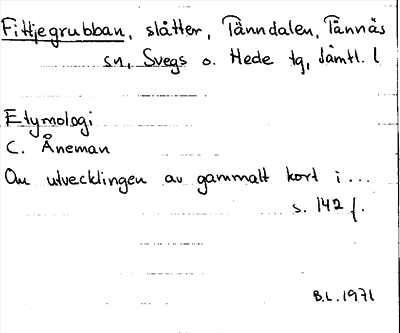 Fittjegrubban, slåtter, Tänndalen, Tännäs
sn, Svegs o. Hede tg, Jämtl. l
Etymologi
C. Åneman
Om utvecklingen av gammalt kort i...
s. 142 f.
B.L. 1971